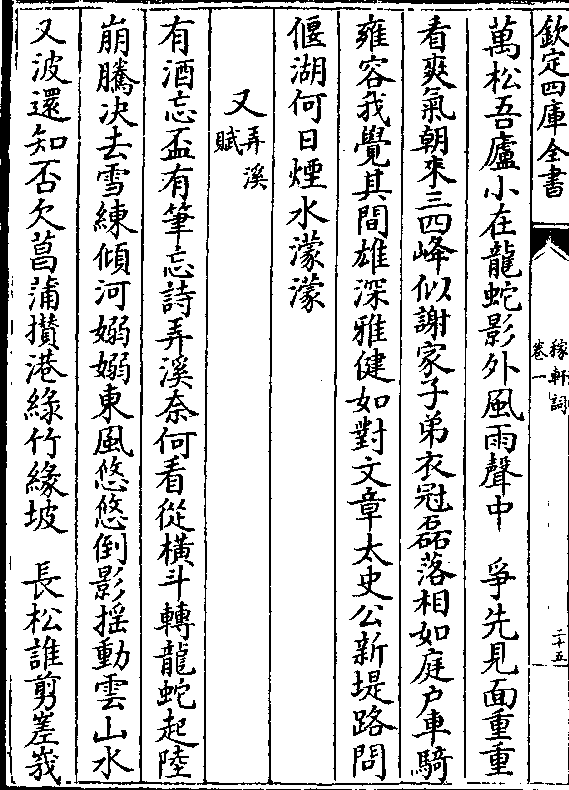 欽定四庫全書
稼軒詞
卷一
二十五
萬松吾廬小在龍蛇影外風雨聲中　爭先見面重重
看爽氣朝來三四峰似謝家子弟衣冠磊落相如庭户車騎
雍容我覺其間雄深雅健如對文章太史公新堤路問
偃湖何日煙水濛濛
又弄溪賦
有酒忘盃有筆忘詩弄溪奈何看從橫斗轉龍蛇起陸
崩騰决去雪練傾河嫋嫋東風悠悠倒影揺動雲山水
又波還知否欠菖蒲攢港緑竹緣坡　長松誰剪嵳峩